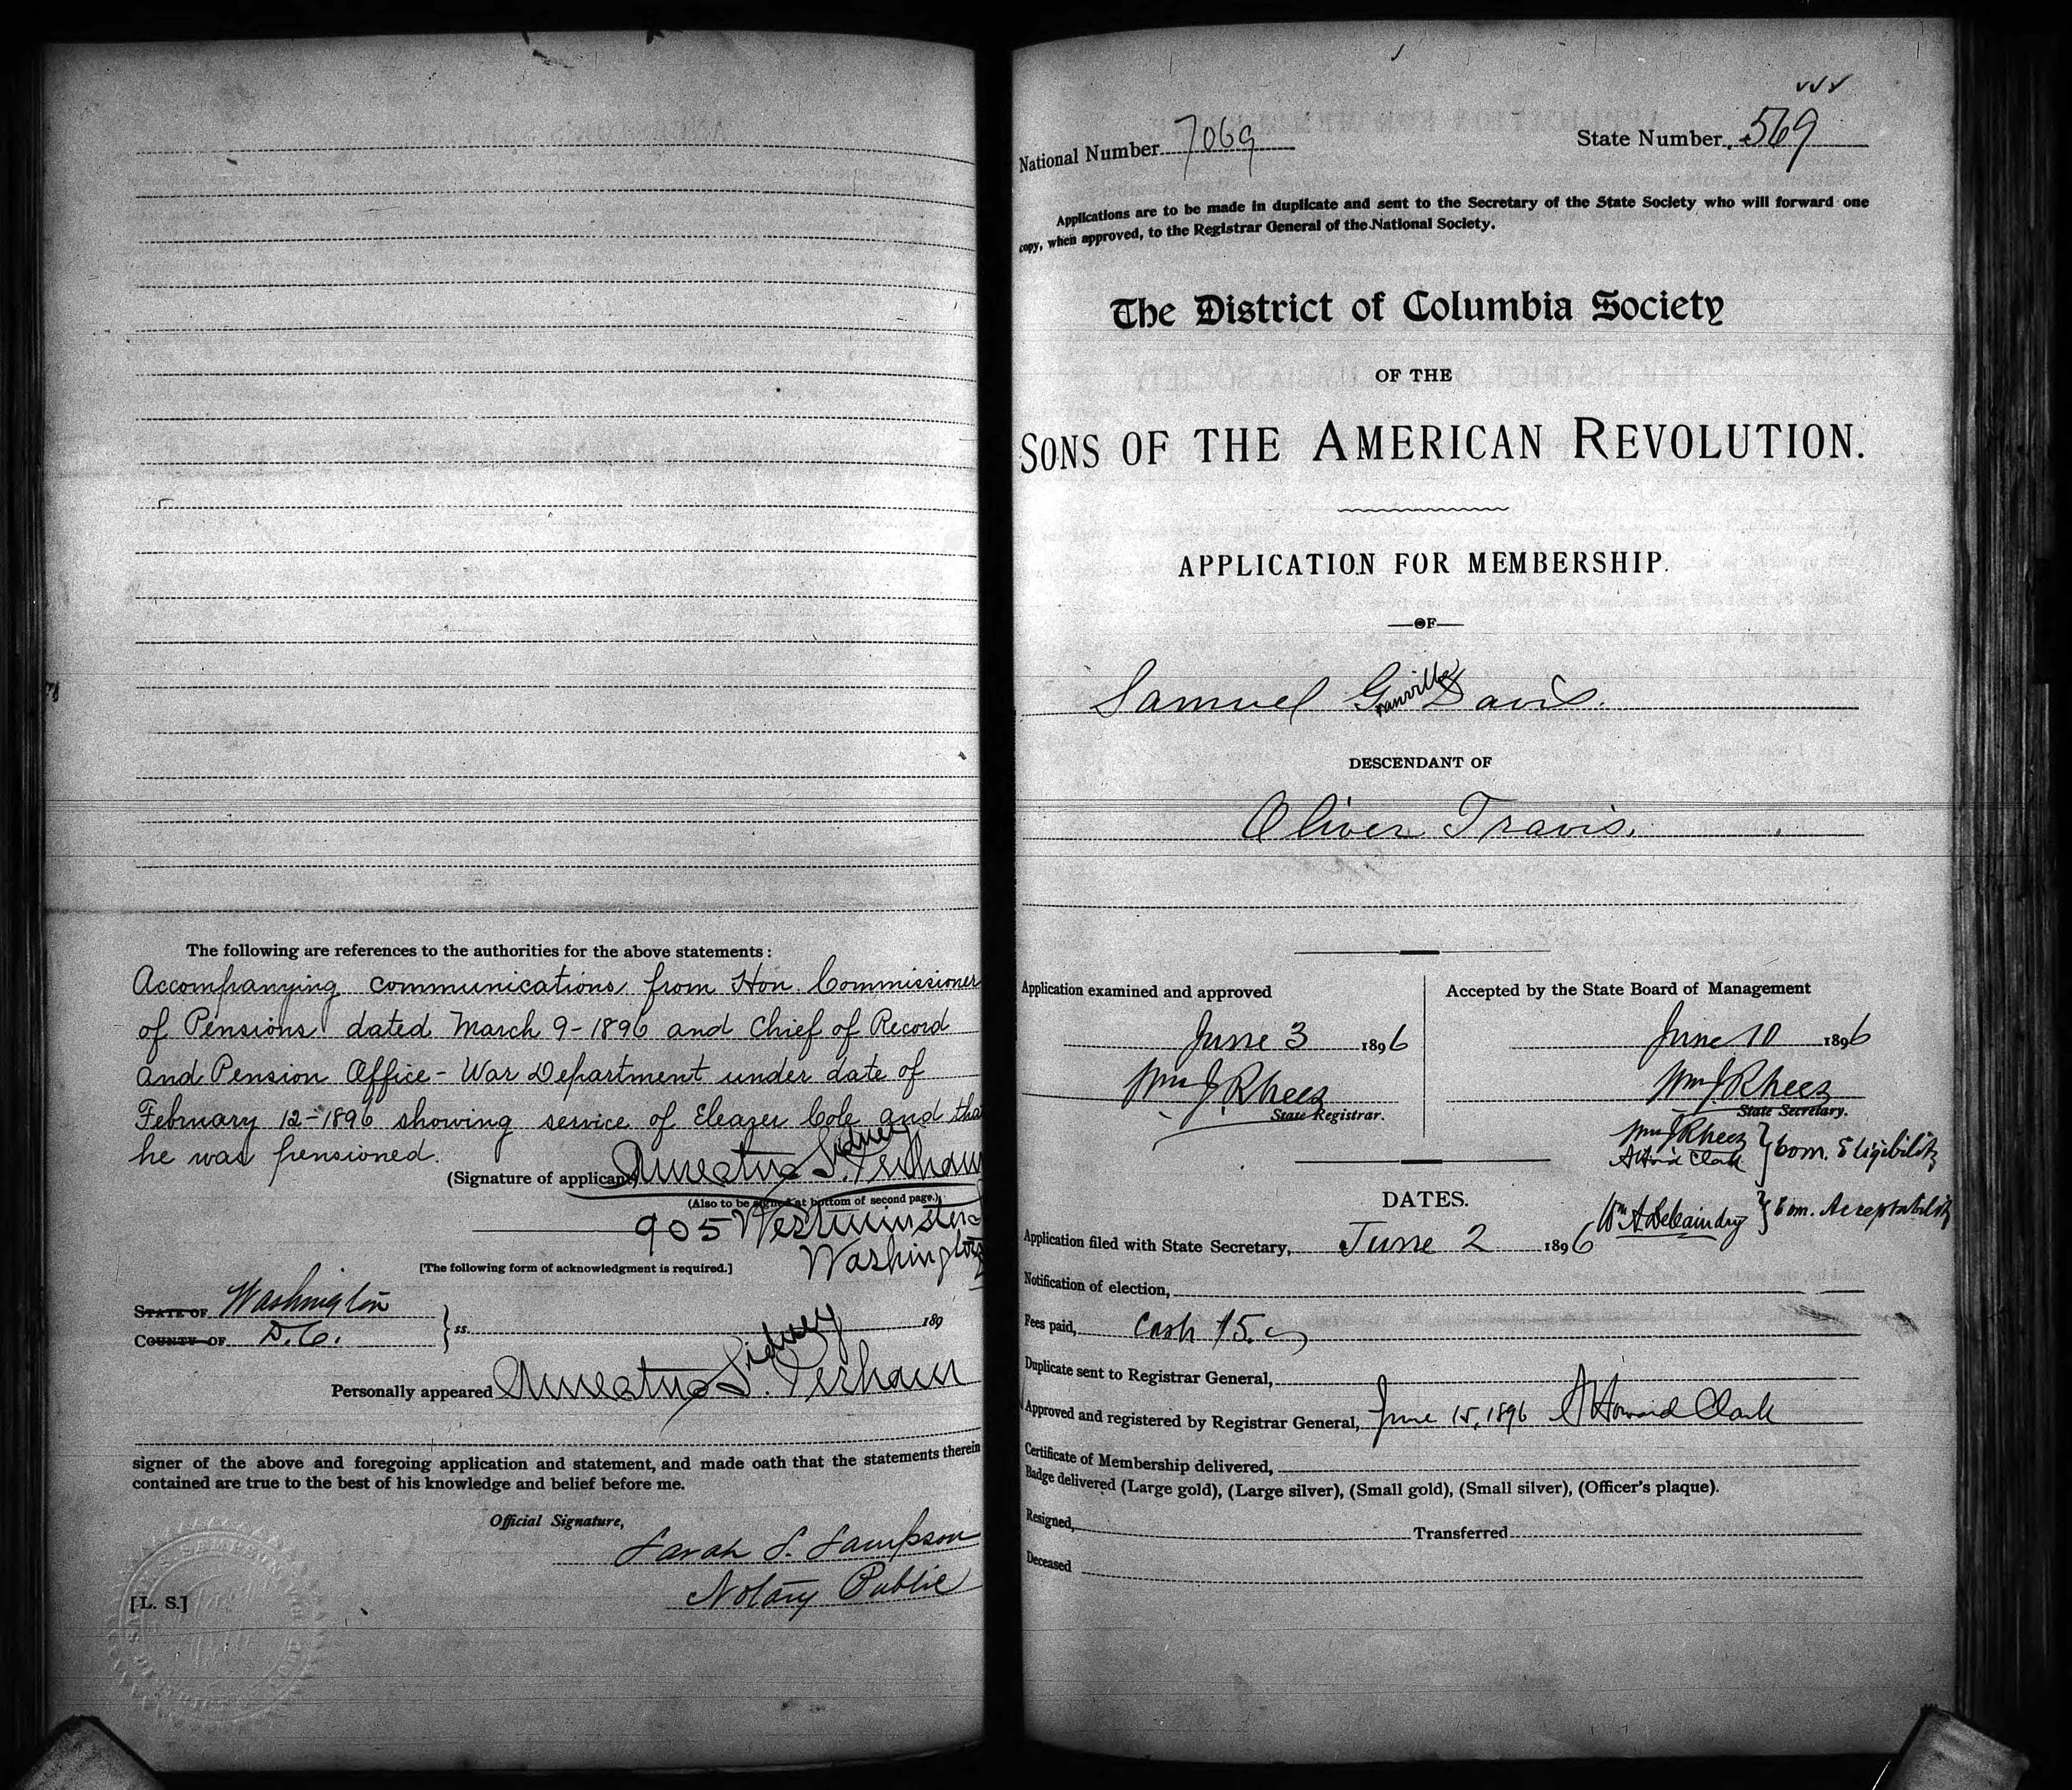 The following are references to the authorities for the above statements:
Accompanying communications from Hon. Commissioner
of Pensions dated March 9-1896 and Chief of Record
and Pension Office - War Department under date of
February 12-1896 showing service of Eleazer Cole and tha
he was pensioned.
(Signature of applicant) S. Sidney Perham
(Also to be signed at bottom of second page.)
905 Westminster
Washington
[The following form of acknowledgment is required.]
STATE OF Washington
COUNTY OF D.C. } ss. 189
Personally appeared S. Sidney Perham
signer of the above and foregoing application and statement, and made oath that the statements therein
contained are true to the best of his knowledge and belief before me.
Official Signature,
Sarah S. Sampson
Notary Public
[L. S.]
National Number 7069 State Number 569
Applications are to be made in duplicate and sent to the Secretary of the State Society who will forward one
copy, when approved, to the Registrar General of the National Society.
The District of Columbia Society
OF THE
SONS OF THE AMERICAN REVOLUTION.
APPLICATION FOR MEMBERSHIP.
—OF—
Samuel Granville Davis.
DESCENDANT OF
Oliver Travis.
Application examined and approved
June 3 1896
Wm J Rhees
State Registrar.
Accepted by the State Board of Management
June 10 1896
Wm J Rhees
State Secretary.
Wm J Rhees
A Howard Clark } Com. Eligibility
Wm A } Com. Acceptability
DATES.
Application filed with State Secretary, June 2 1896
Notification of election,
Fees paid, Cash $5.
Duplicate sent to Registrar General,
Approved and registered by Registrar General, June 15, 1896 A Howard Clark
Certificate of Membership delivered,
Badge delivered (Large gold), (Large silver), (Small gold), (Small silver), (Officer's plaque).
Resigned, Transferred
Deceased